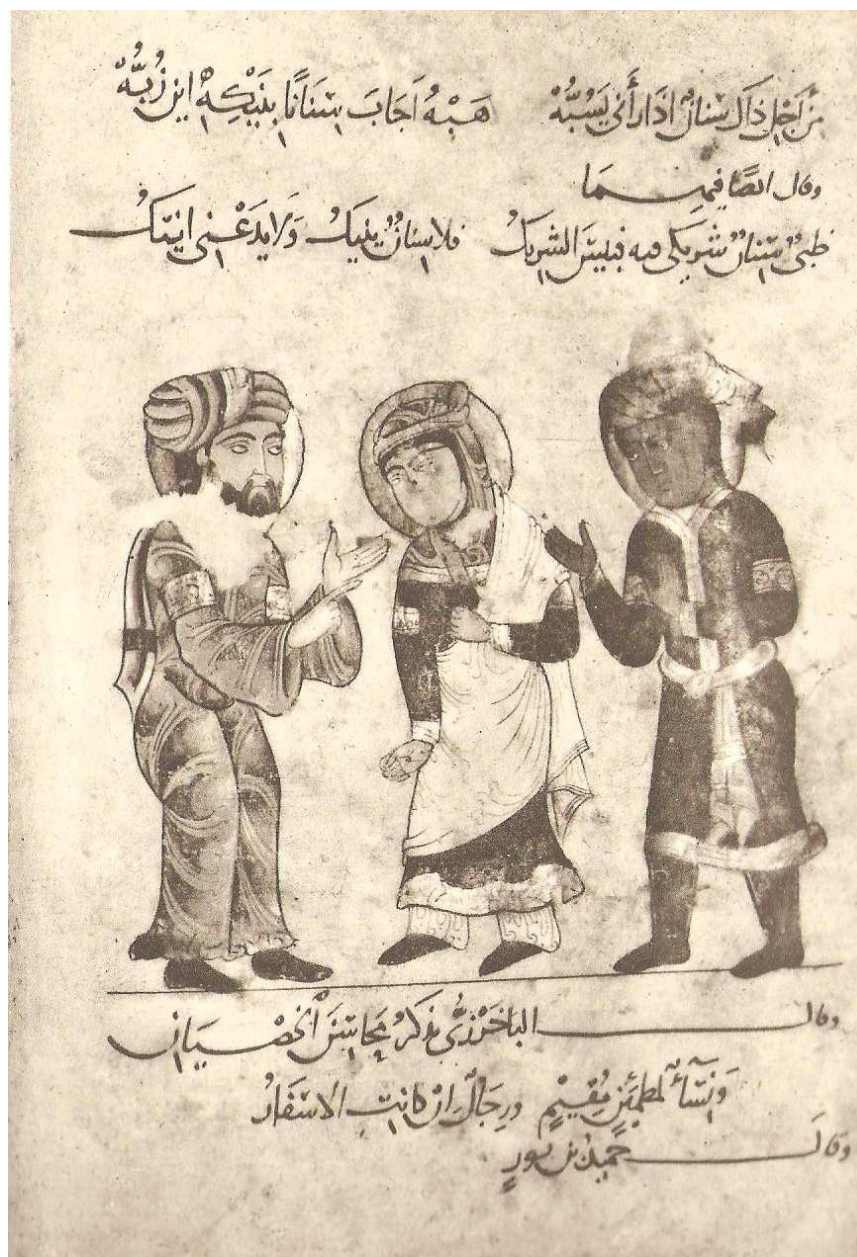 من أجل ذاك سنان إذا رأني يسبه هبه أجاب سنانا بنيكه اين زبه
وقال ايضا فيهما
ظبي سنان شريكي فيه فبيس الشريك فلا سنان ينيك ولا يدعني انيك
وقال الباخرزي يذكر محاسن الخصيان
ونساء لمطمئن مقيم ورجال ان كانت الاسفار
وقال حميد بن ثور